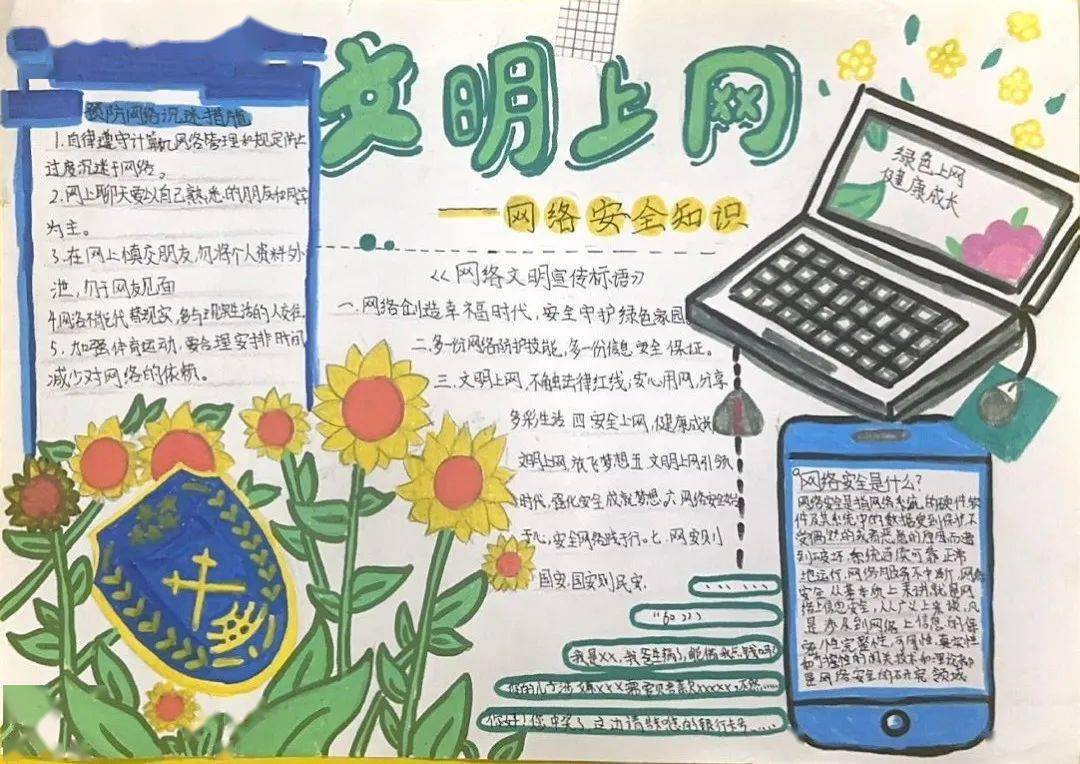 文明上网
——网络安全知识
预防网络沉迷措施
1.自律遵守计算机网络管理和规定停止
过度沉迷于网络。
2.网上聊天要以自己熟悉的朋友和同学
为主。
3.在网上慎交朋友,勿将个人资料外
泄,勿于网友见面
4.网络不能代替现实,多与现实生活的人交往。
5.加强体育运动,要合理安排时间,
减少对网络的依赖。
《网络文明宣传标语》
一.网络创造幸福时代,安全守护绿色家园。
二.多份网络防护技能,多份信息安全保证。
三.文明上网,不触法律红线;安心用网,分享
多彩生活 四 安全上网,健康成长
文明上网,放飞梦想 五 文明上网引领
时代,强化安全成就梦想。六 网络安全
于心,安全网络践于行。七.网安则
国安,国安则民安.
绿色上网
健康成长
网络安全是什么?
网络安全是指网络系统的硬件软
件及其系统中的数据受到保护不
受偶然的或者恶意的原因而遭
到破坏.系统连续可靠正常
地运行,网络服务不中断,网络
安全从其本质上来讲就是网
络上信息安全,从广义上来说,凡
是涉及到网络上信息的保
密性完整性,可用性,真实性
和可控性的相关技术和理论都
是网络安全的研究领域
……
我是XX,我妈生病了,能借我点钱吗?
你好!你中奖了,这边请照您的银行卡号……